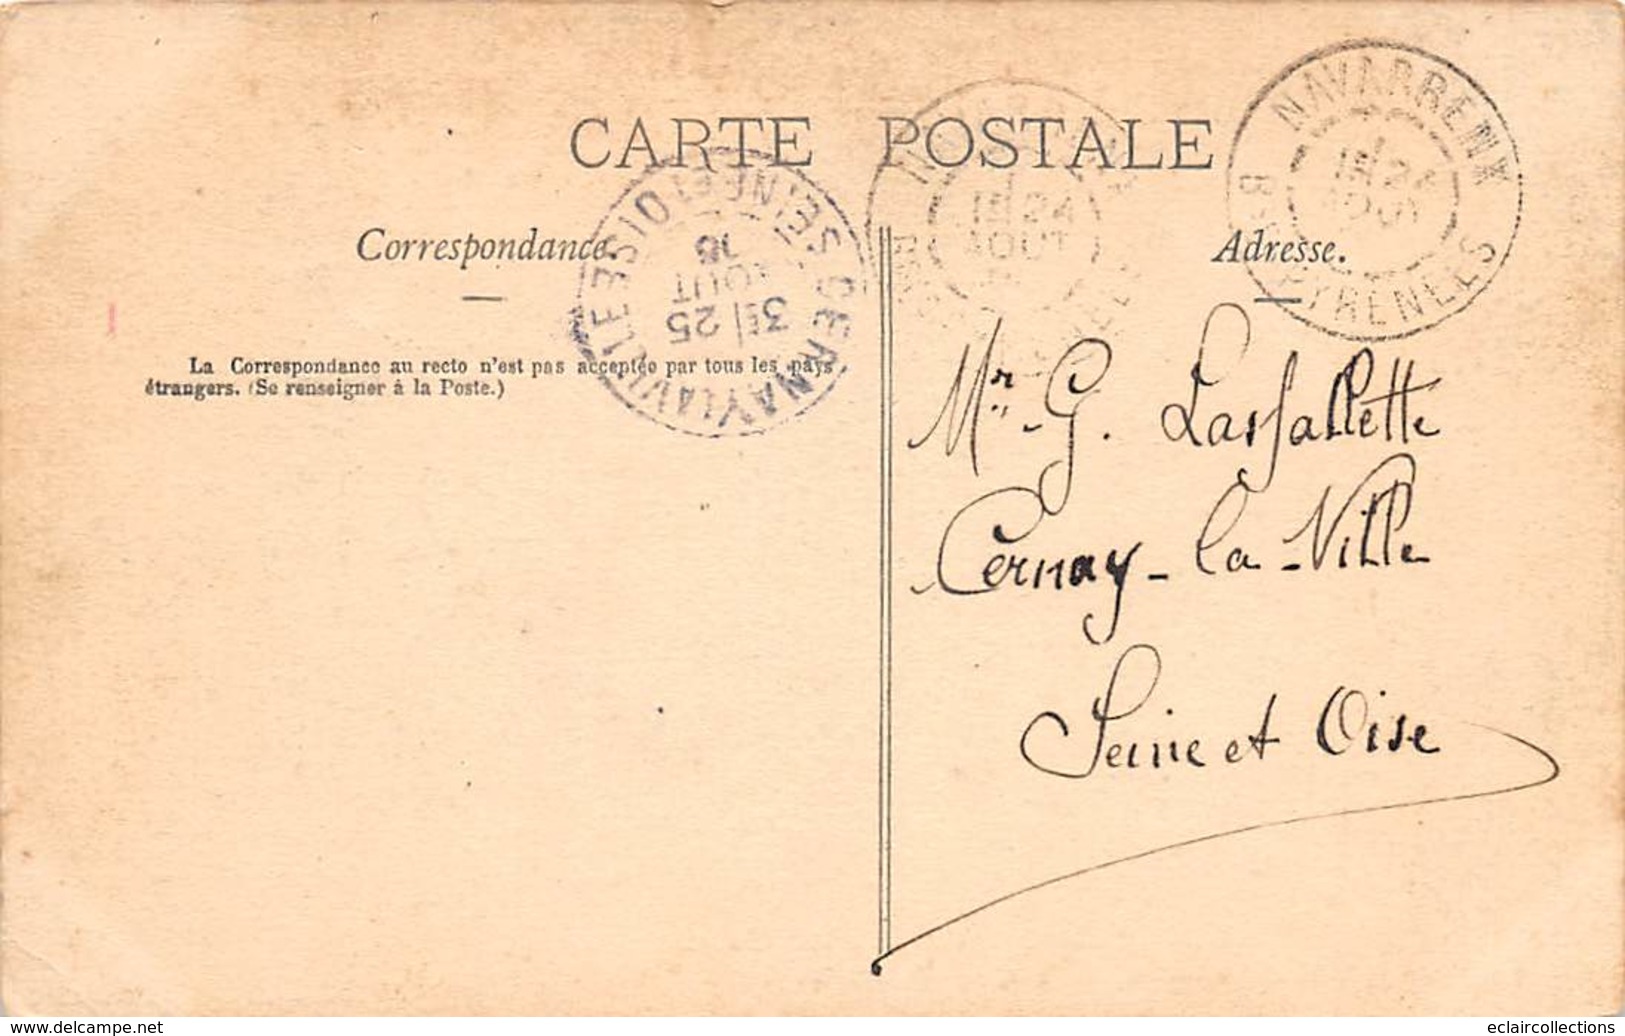 CARTE POSTALE
Correspondance
Adresse.
La Correspondance au recto n'est pas acceptée par tous les pays
étrangers. (Se renseigner à la Poste.)
NAVARRENX
1E 24
AOUT
24
AOUT
PYRENEES
CERNAY LA VILLE
SEINE ET OISE
3E 25
AOUT
Mr. G. Lassallette
Cernay-la-Ville
Seine et Oise
www.delcampe.net
eclaircollections